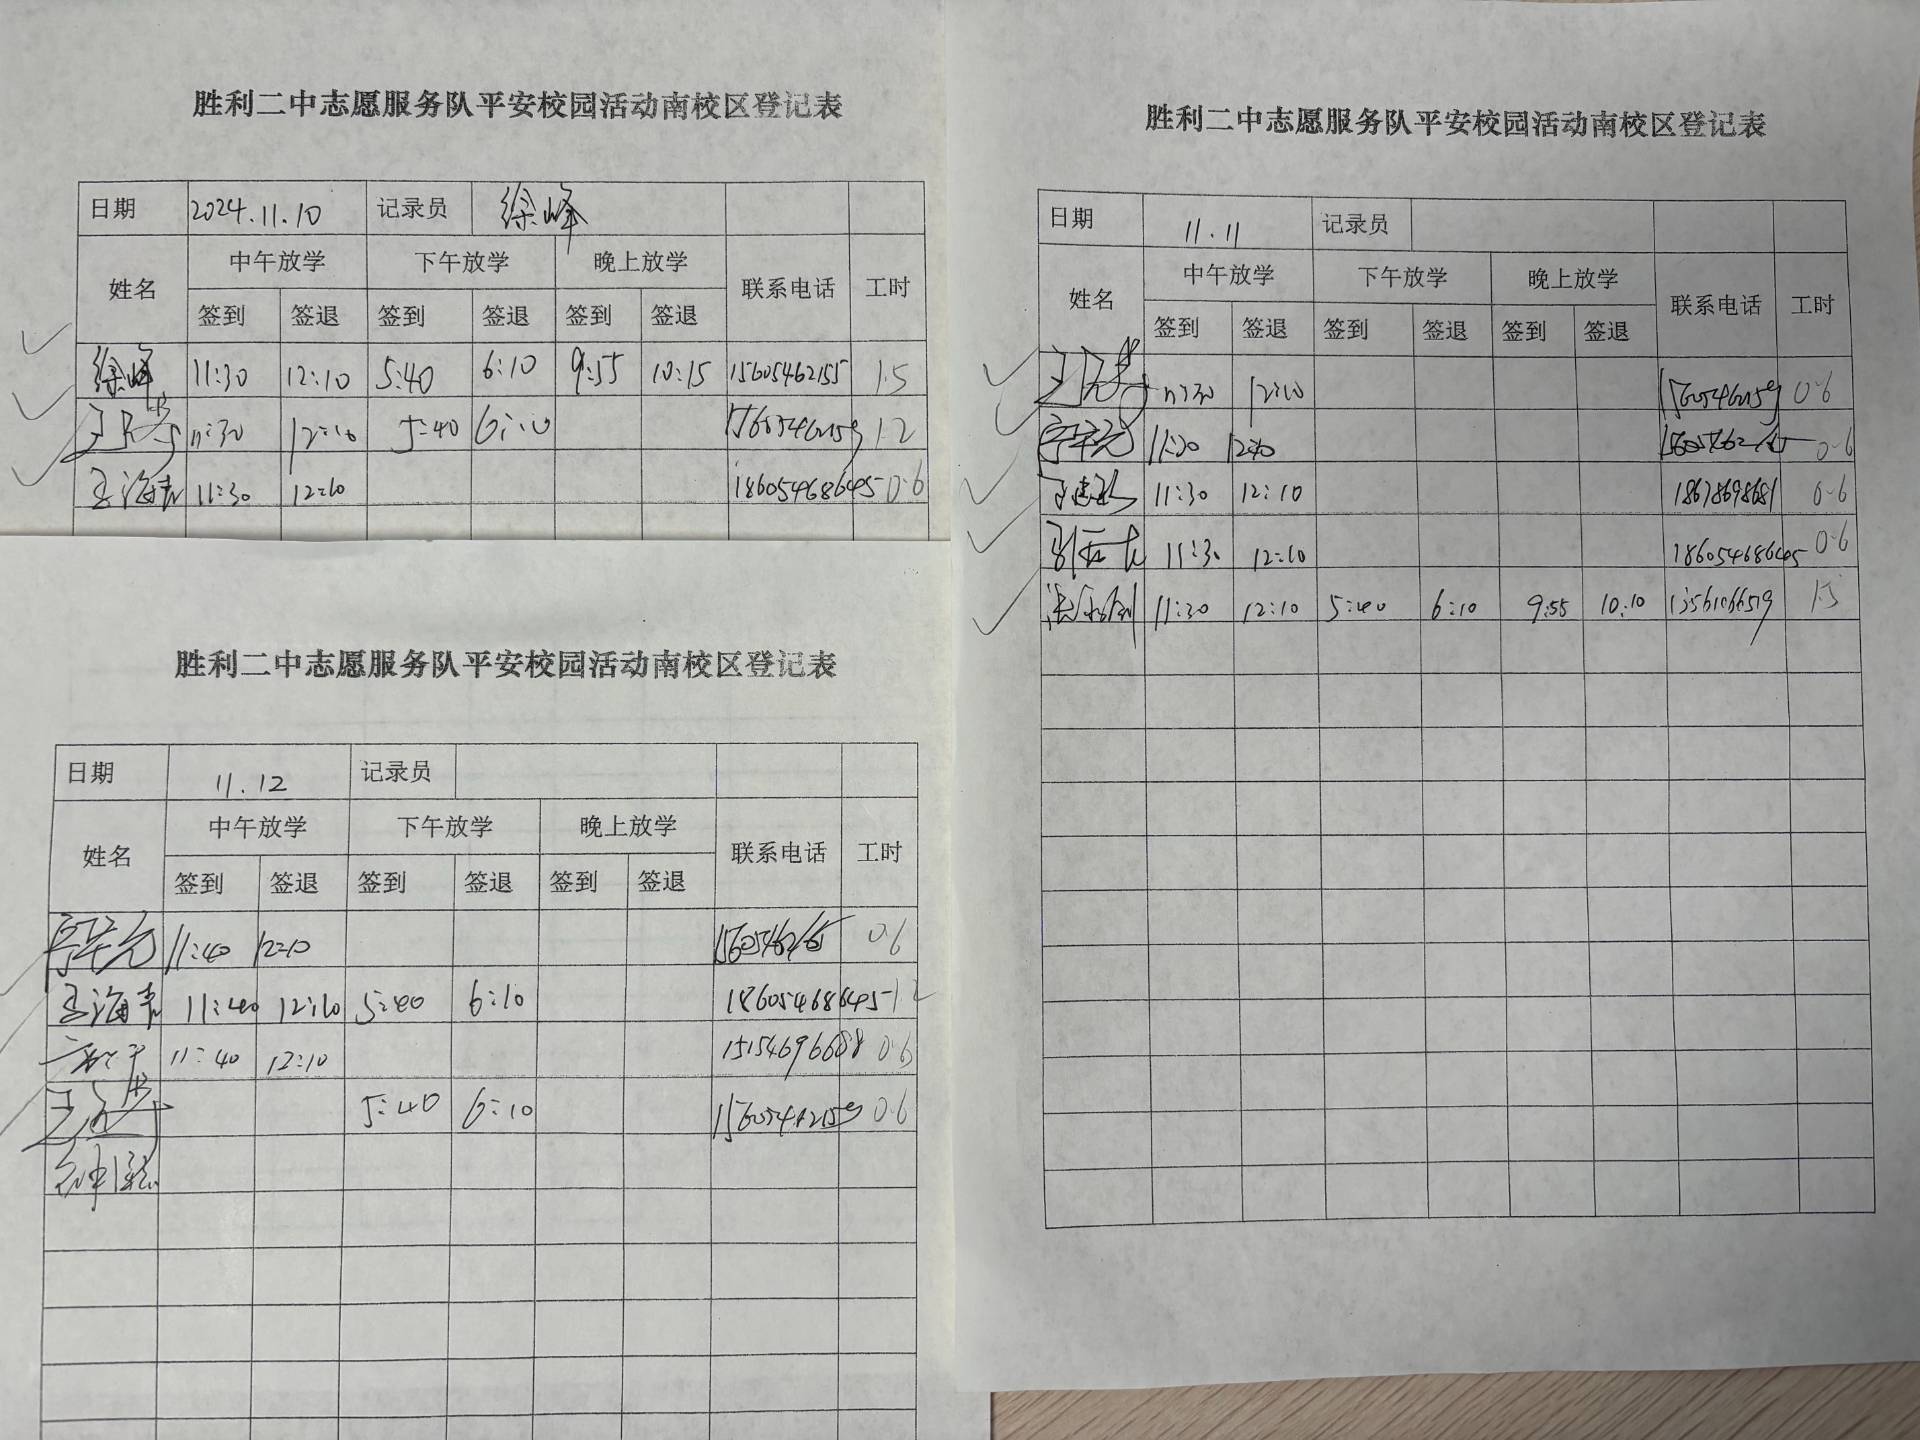 胜利二中志愿服务队平安校园活动南校区登记表
日期 2024.11.10 记录员 徐峰
姓名 中午放学 下午放学 晚上放学 联系电话 工时
签到 签退 签到 签退 签到 签退
徐峰 11:30 12:10 5:40 6:10 9:55 10:15 15605462155 1.5
11:30 12:10 5:40 6:10 15605462159 1.2
王海青 11:30 12:10 18605468645 0.6
胜利二中志愿服务队平安校园活动南校区登记表
日期 11.11 记录员
姓名 中午放学 下午放学 晚上放学 联系电话 工时
签到 签退 签到 签退 签到 签退
11:30 12:10 15605462159 0.6
11:30 12:10 0.6
11:30 12:10 18678698681 0.6
11:30 12:10 18605468645 0.6
11:30 12:10 5:40 6:10 9:55 10:10 13561066519 1.5
胜利二中志愿服务队平安校园活动南校区登记表
日期 11.12 记录员
姓名 中午放学 下午放学 晚上放学 联系电话 工时
签到 签退 签到 签退 签到 签退
11:40 12:10 0.6
王海青 11:40 12:10 5:40 6:10 18605468645 1.2
11:40 12:10 15154696688 0.6
5:40 6:10 0.6